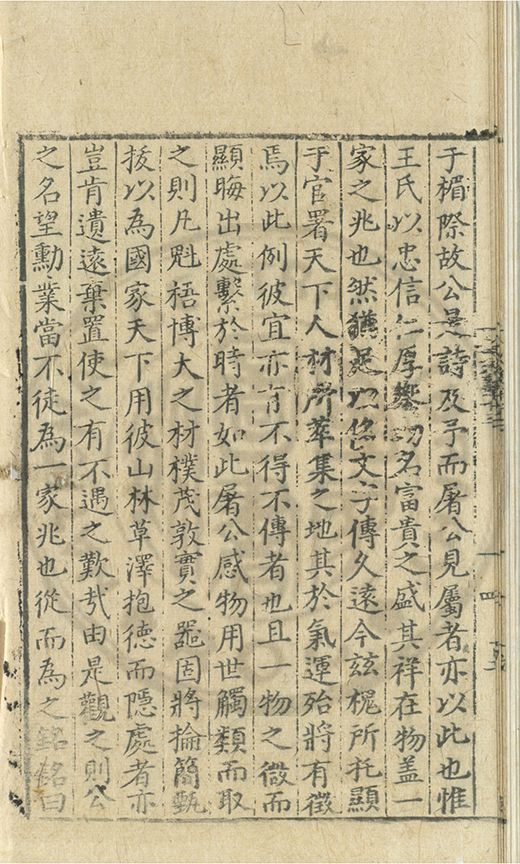 于楣際故公是詩及予而屠公見屬者亦以此也惟
王氏以忠信仁厚饗功名富貴之盛其祥在物盖一
家之兆也然猶足以侈文字傳久遠今玆槐所托顯
于官署天下人材所萃集之地其於氣運殆將有徵
焉以此例彼宜亦有不得不傳者也且一物之微而
顯晦出處繫於時者如此屠公感物用世觸類而取
之則凡魁梧博大之材樸茂敦實之器固將掄簡甄
拔以為國家天下用彼山林草澤抱德而隱處者亦
豈肯遺遠棄置使之有不遇之歎㢤由是觀之則公
之名望勳業當不徒為一家兆也從而為之銘銘曰
四